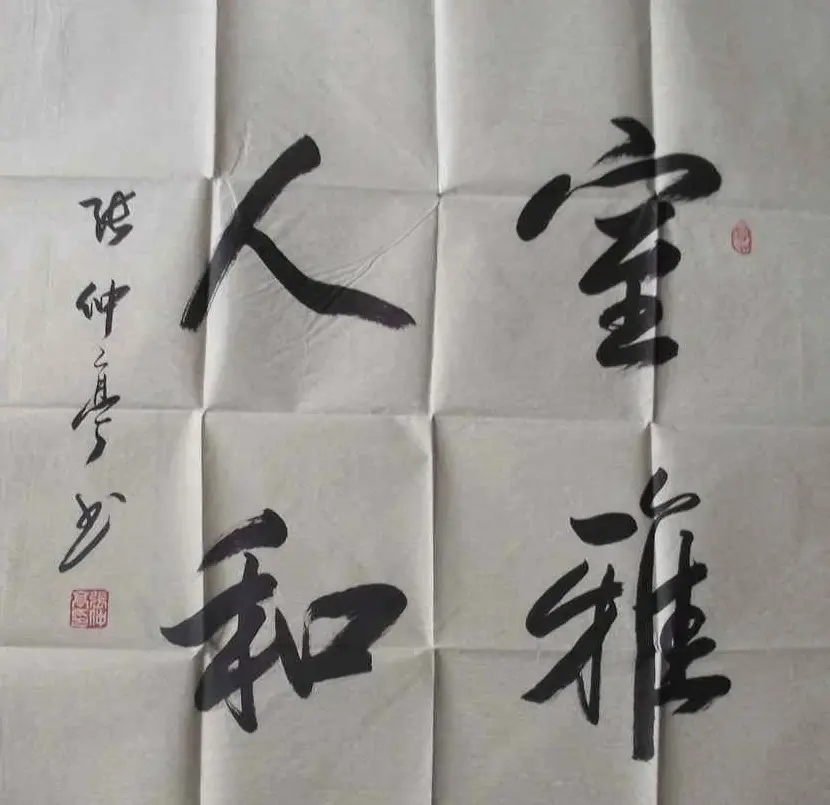 室雅
人和
张仲亭书